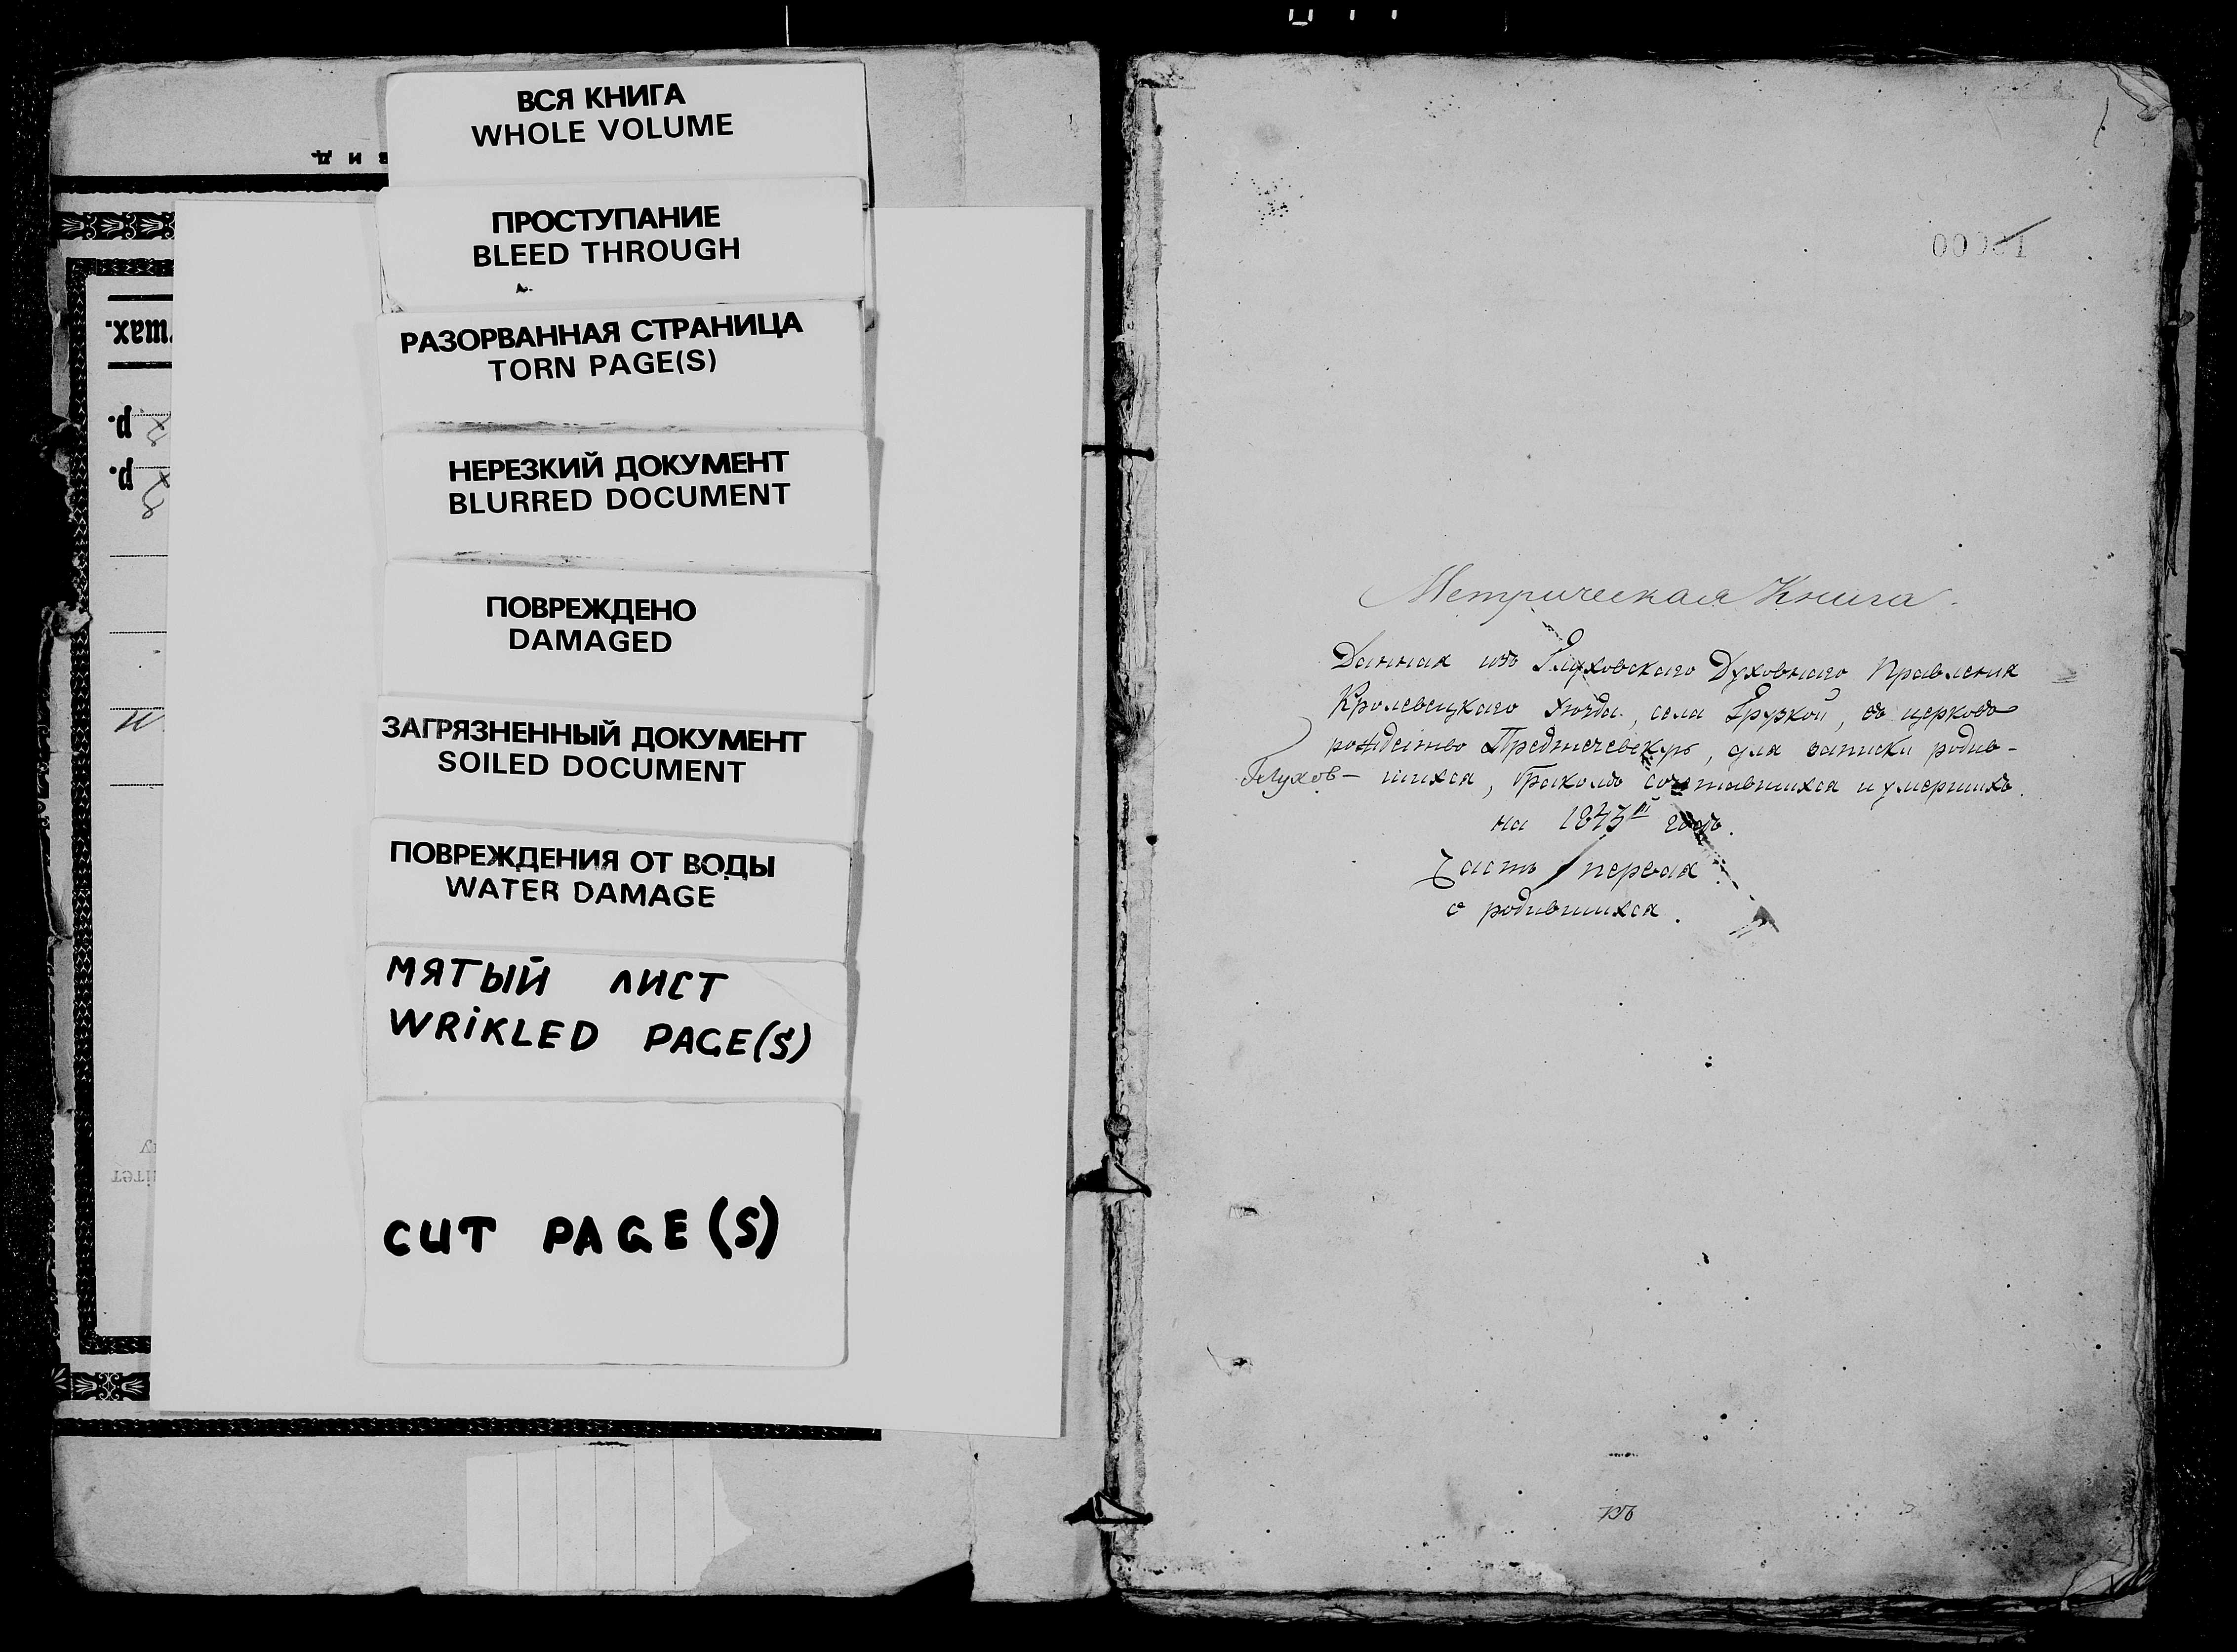 ВСЯ КНИГА
WHOLE VOLUME
ПРОСТУПАНИЕ
BLEED THROUGH
РАЗОРВАННАЯ СТРАНИЦА
TORN PAGE(S)
НЕРЕЗКИЙ ДОКУМЕНТ
BLURRED DOCUMENT
ПОВРЕЖДЕНО
DAMAGED
ЗАГРЯЗНЕННЫЙ ДОКУМЕНТ
SOILED DOCUMENT
ПОВРЕЖДЕНИЯ ОТ ВОДЫ
WATER DAMAGE
МЯТЫЙ ЛИСТ
WRIKLED PAGE(S)
CUT PAGE(S)
р.
р.
Метрическая Книга.
Данная изъ Глуховскаго Духовнаго Правления
Кролевецкаго уѣзда, села Грузкой, въ церковь
рождество Предтечевскую, для записки родив-
Глухов- шихся, бракомъ сочетавшихся и умершихъ.
на 1843й годъ.
Часть первая
о родившихся.